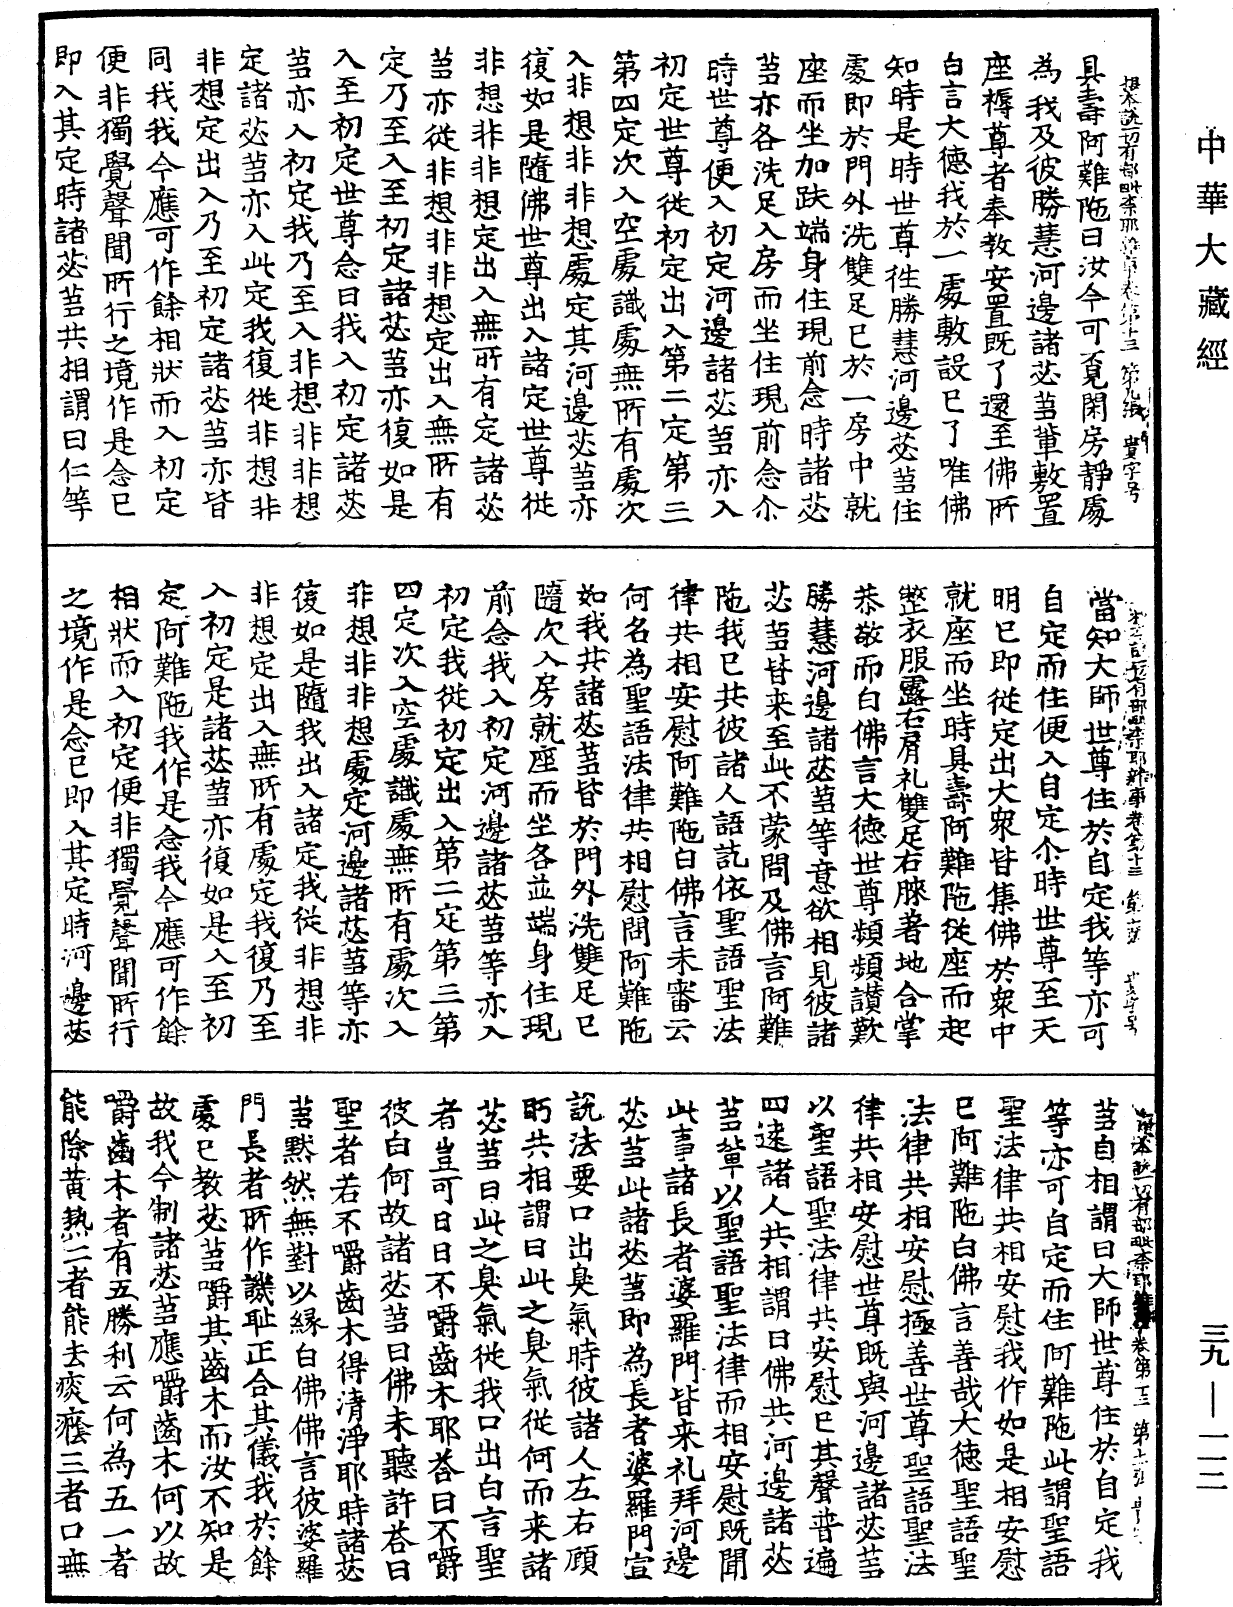 中華大藏經
根本說一切有部毗奈耶雜事卷第十三 第九張 貴字号
具壽阿難陁曰汝今可覓閑房靜處
為我及彼勝慧河邊諸苾蒭輩敷置
座褥尊者奉教安置既了還至佛所
白言大德我於一處敷設已了唯佛
知時是時世尊徃勝慧河邊苾蒭住
處即於門外洗雙足已於一房中就
座而坐加趺端身住現前念時諸苾
蒭亦各洗足入房而坐住現前念尒
時世尊便入初定河邊諸苾蒭亦入
初定世尊從初定出入第二定第三
第四定次入空處識處無所有處次
入非想非非想處定其河邊苾蒭亦
復如是隨佛世尊出入諸定世尊從
非想非非想定出入無所有定諸苾
蒭亦從非想非非想定出入無所有
定乃至入至初定諸苾蒭亦復如是
入至初定世尊念曰我入初定諸苾
蒭亦入初定我乃至入非想非非想
定諸苾蒭亦入此定我復從非想非
非想定出入乃至初定諸苾蒭亦皆
同我我今應可作餘相狀而入初定
便非獨覺聲聞所行之境作是念已
即入其定時諸苾蒭共相謂曰仁等
當知大師世尊住於自定我等亦可
自定而住便入自定尒時世尊至天
明已即從定出大衆皆集佛於衆中
就座而坐時具壽阿難陁從座而起
整衣服露右肩礼雙足右膝著地合掌
恭敬而白佛言大德世尊頻頻讃歎
勝慧河邊諸苾蒭等意欲相見彼諸
苾蒭皆来至此不蒙問及佛言阿難
陁我已共彼諸人語訖依聖語聖法
律共相安慰阿難陁白佛言未審云
何名為聖語法律共相慰問阿難陁
如我共諸苾蒭皆於門外洗雙足已
隨次入房就座而坐各並端身住現
前念我入初定河邊諸苾蒭等亦入
初定我從初定出入第二定第三第
四定次入空處識處無所有處次入
非想非非想處定河邊諸苾蒭等亦
復如是隨我出入諸定我從非想非
非想定出入無所有處定我復乃至
入初定是諸苾蒭亦復如是入至初
定阿難陁我作是念我今應可作餘
相狀而入初定便非獨覺聲聞所行
之境作是念已即入其定時河邊苾
蒭自相謂曰大師世尊住於自定我
等亦可自定而住阿難陁此謂聖語
聖法律共相安慰我作如是相安慰
已阿難陁白佛言善哉大德聖語聖
法律共相安慰極善世尊聖語聖法
律共相安慰世尊既與河邊諸苾蒭
以聖語聖法律共安慰已其聲普遍
四遠諸人共相謂曰佛共河邊諸苾
蒭輩以聖語聖法律而相安慰既聞
此事諸長者婆羅門皆来礼拜河邊
苾蒭此諸苾蒭即為長者婆羅門宣
說法要口出臭氣時彼諸人左右顧
眄共相謂曰此之臭氣從何而来諸
苾蒭曰此之臭氣從我口出白言聖
者豈可日日不嚼齒木耶荅曰不嚼
彼白何故諸苾蒭曰佛未聽許荅曰
聖者若不嚼齒木得清淨耶時諸苾
蒭黙然無對以緣白佛佛言彼婆羅
門長者所作譏耻正合其儀我於餘
處已教苾蒭嚼其齒木而汝不知是
故我今制諸苾蒭應嚼齒木何以故
嚼齒木者有五勝利云何為五一者
能除黄熱二者能去痰癊三者口無
三九—一一二